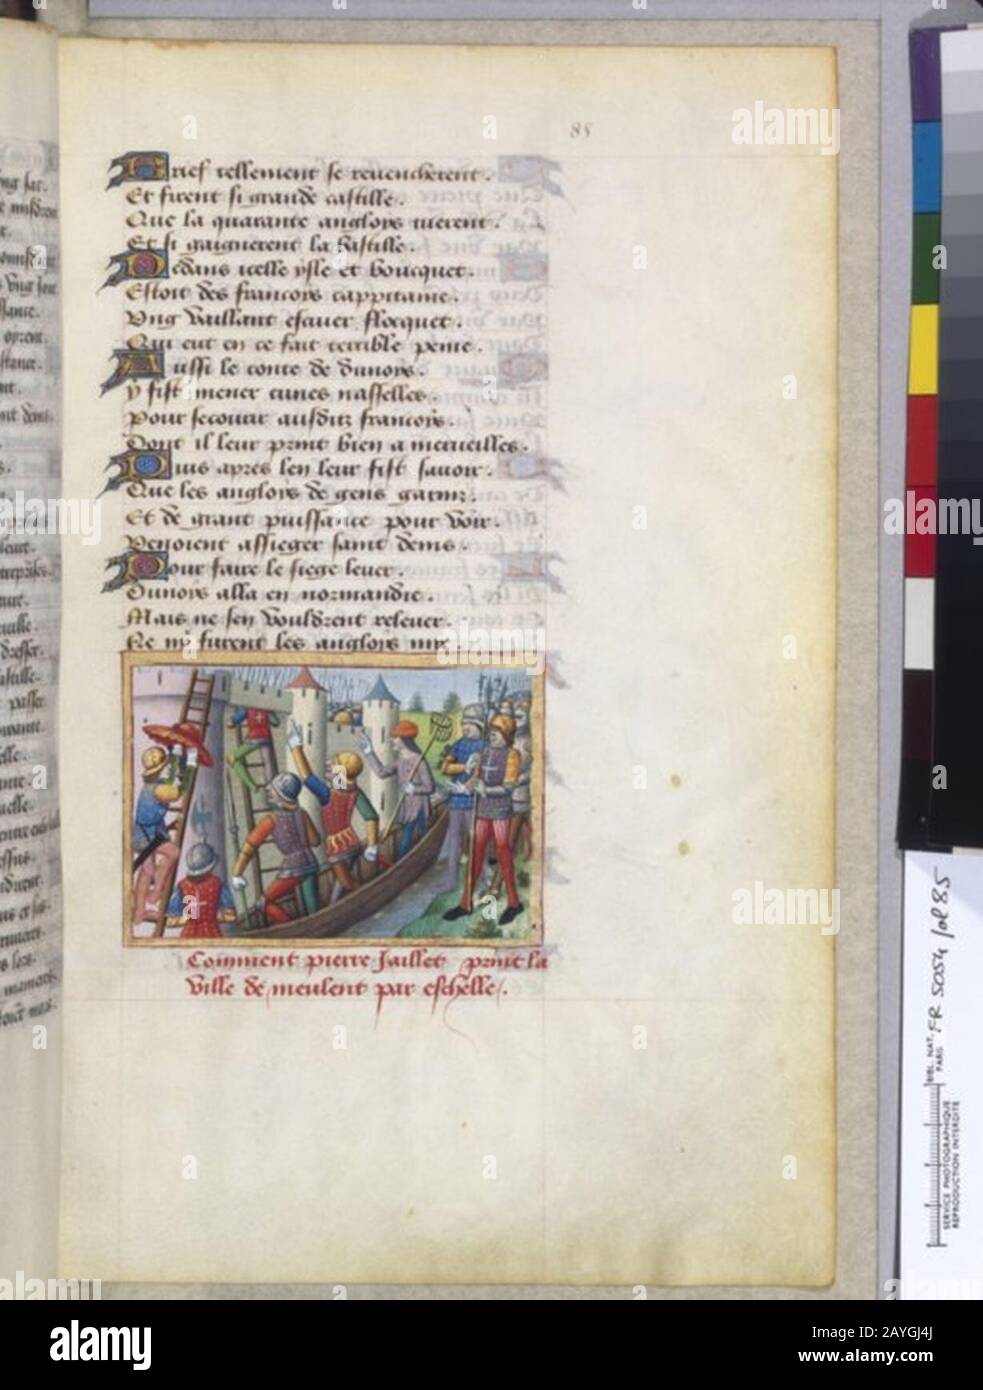 85
Brief tellement se revencherent.
Et firent si grande castille.
Que la quarante angloys tuerent.
Et si gaignerent la bastille.
Dedans icelle ysle et boucquet.
Estoit des francoys cappitaine.
Ung vaillant escuier flocquet.
Qui eut en ce fait terrible peine.
Aussi le conte de dunoys.
y fist mener cunes nasselles.
Pour secourir ausditz francoys.
Dont il leur print bien a merveilles.
Puis apres len leur fist savoir.
Que les angloys de gens garniz.
Et de grant puissance pour voir.
Venoient assieger saint denis.
Pour faire le siege lever.
Dunoys alla en normandie.
Mais ne sen vouldrent relever.
Ne ny furent les angloys mye.
Comment pierre Jaillet print la
ville de meulent par eschelle.
BIBL. NAT. PARIS
FR 5054 fol 85
SERVICE PHOTOGRAPHIQUE
REPRODUCTION INTERDITE
alamy
Image ID: 2AYGJ4J
www.alamy.com